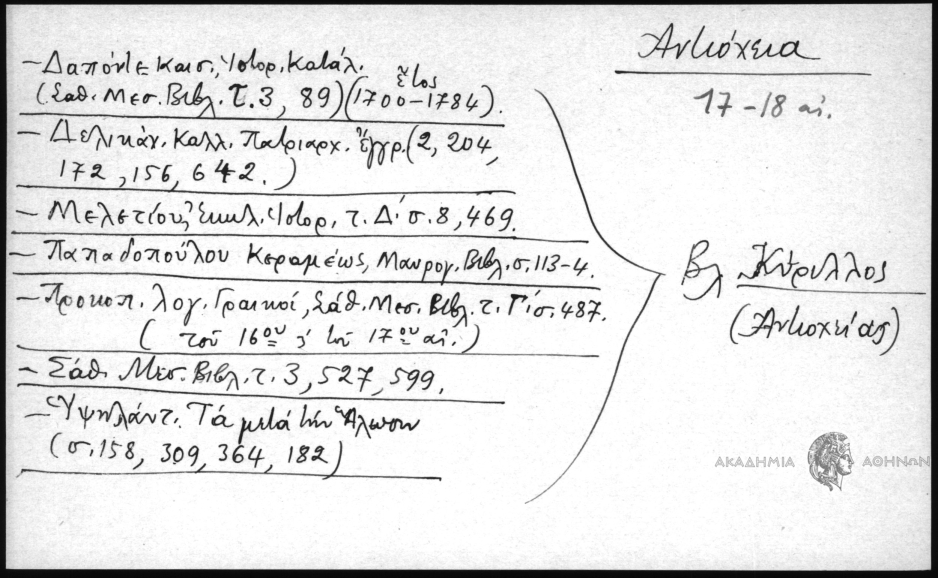 Ἀντιόχεια
17-18 αἰ.
- Δαπόντε Καισ., Ἱστορ. Κατάλ.
(Σάθ. Μεσ. Βιβλ. τ. 3, 89) (ἔτος 1700-1784).
- Δελικάν. Καλλ. Πατριαρχ. ἔγγρ. (2, 204,
172, 156, 642.)
- Μελετίου, Ἐκκλ. Ἱστορ. τ. Δ' σ. 8, 469.
- Παπαδοπούλου Κεραμέως, Μαυρογ. Βιβλ. σ. 113-4.
- Προκοπ. λογ. Γραικοί, Σάθ. Μεσ. Βιβλ. τ. Γ' σ. 487.
(τοῦ 16ου ἤ τοῦ 17ου αἰ.)
- Σάθ. Μεσ. Βιβλ. τ. 3, 527, 599.
- Ὑψηλάντ. Τά μετά τήν Ἅλωσιν
(σ. 158, 309, 364, 182)
Βλ Κύριλλος
(Ἀντιοχείας)
ΑΚΑΔΗΜΙΑ ΑΘΗΝΩΝ